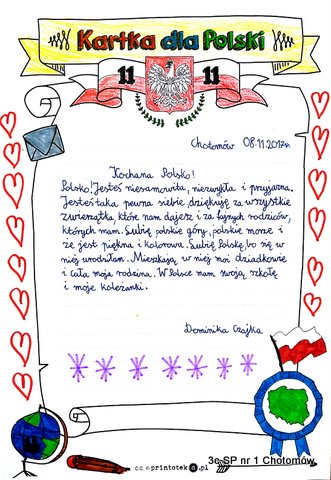 Kartka dla Polski
11 11
Chotomów 08.11.2017r.
Kochana Polsko!
Polsko! Jesteś niesamowita, niezwykła i przyjazna.
Jesteś taka pewna siebie, dziękuję za wszystkie
zwierzątka, które nam dajesz i za fajnych rodziców,
których mam. Lubię polskie góry, polskie morze i
że jest piękna i kolorowa. Lubię Polskę, bo się w
niej urodziłam. Mieszkają w niej moi dziadkowie
i cała moja rodzina. W Polsce mam swoją szkołę
i moje koleżanki.
Dominika Czajka
printoteka.pl
3c SP nr 1 Chotomów